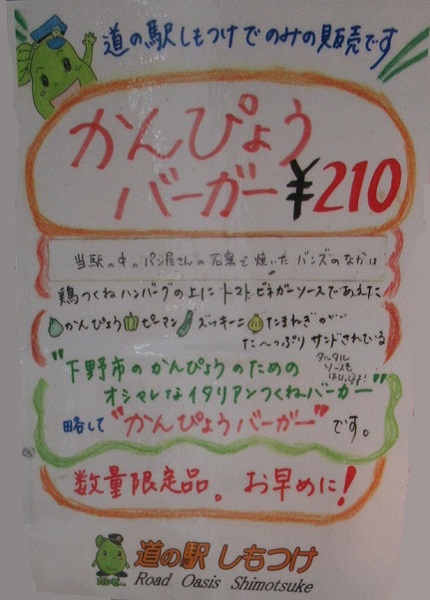 道の駅しもつけでのみの販売です
かんぴょう
バーガー ¥210
当駅の中のパン屋さんの石窯で焼いたバンズのなかは
鶏つくねハンバーグの上にトマトビネガーソースであえた
かんぴょう ピーマン ズッキーニ たまねぎが
た〜っぷりサンドされている
タルタル
ソースも
"下野市のかんぴょうのための
オシャレなイタリアンつくねバーガー"
略して "かんぴょうバーガー" です。
数量限定品。お早めに!
道の駅 しもつけ
Road Oasis Shimotsuke